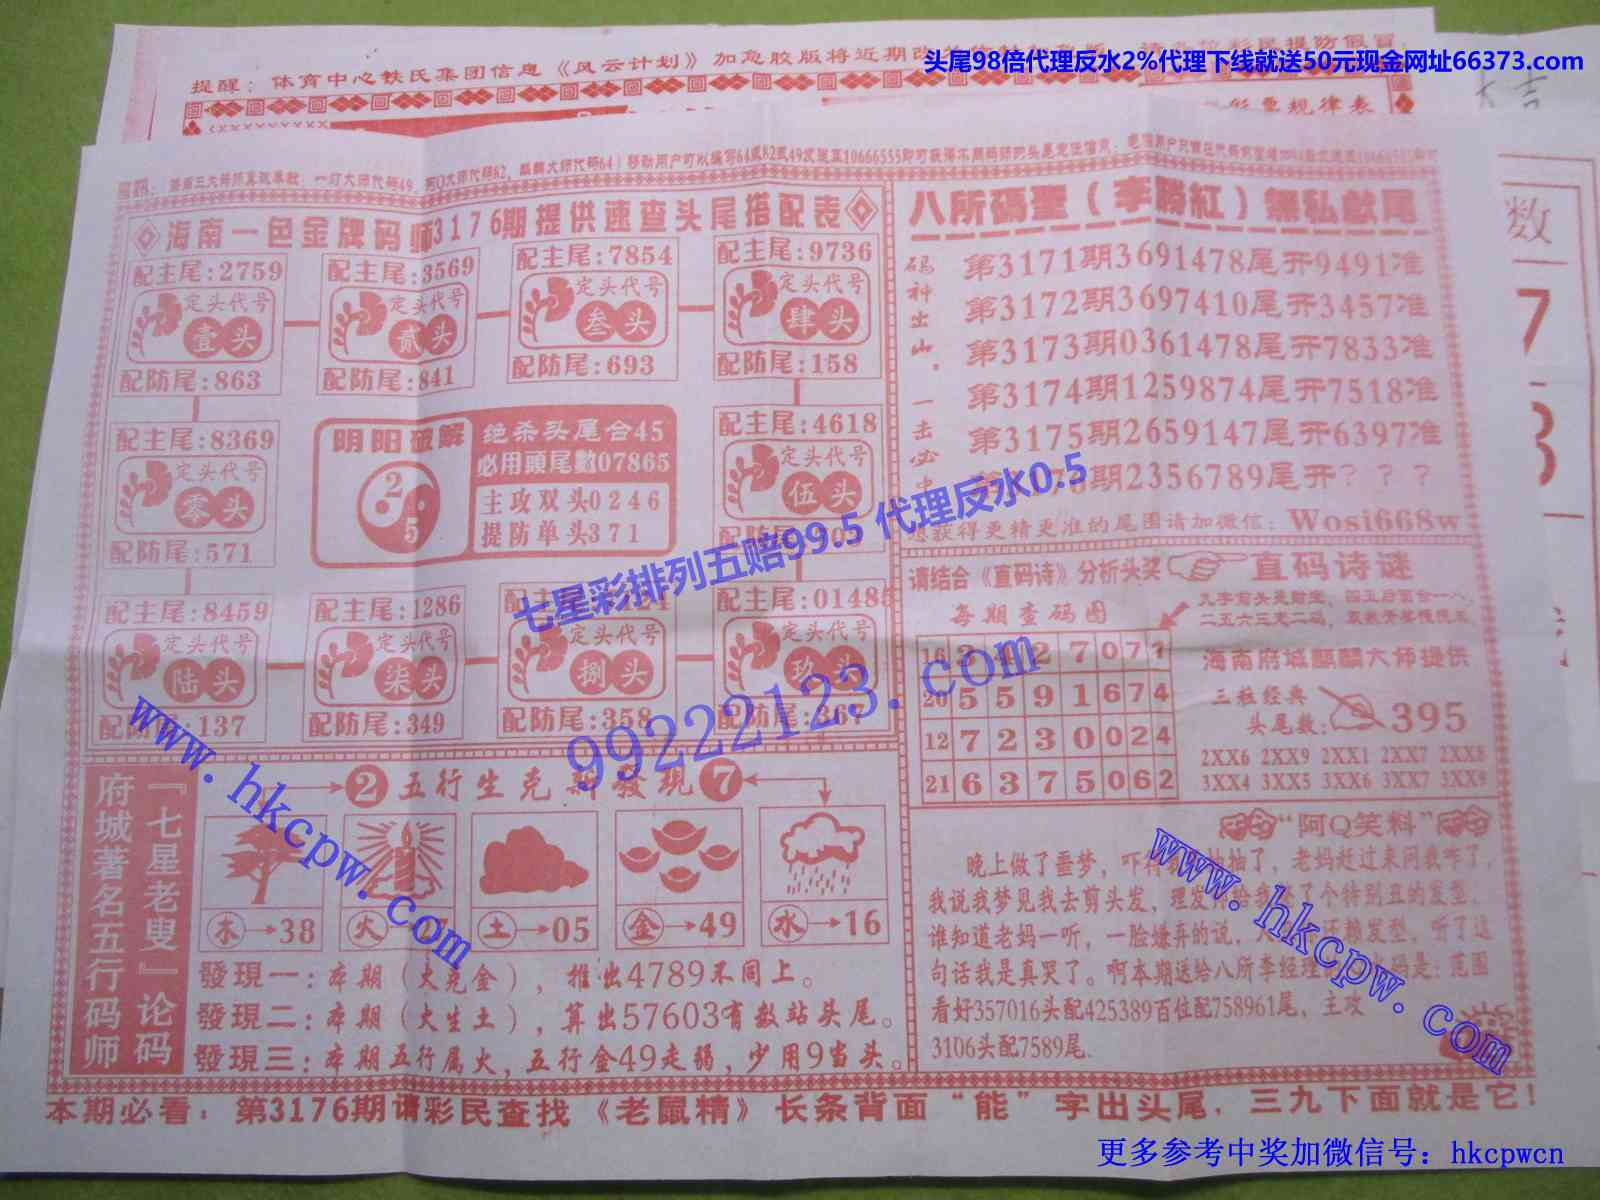 头尾98倍代理反水2%代理下线就送50元现金网址66373.com
提醒：体育中心铁氏集团信息《风云计划》加急胶版将近期
提防假冒
规律表
大吉
数
海南一色金牌码师3176期提供速查头尾搭配表
配主尾:2759
定头代号
壹头
配防尾:863
配主尾:3569
定头代号
贰头
配防尾:841
配主尾:7854
定头代号
叁头
配防尾:693
配主尾:9736
定头代号
肆头
配防尾:158
配主尾:8369
定头代号
零头
配防尾:571
阴阳破解
2
5
绝杀头尾合45
必用頭尾數07865
主攻双头0246
提防单头371
配主尾:4618
定头代号
伍头
配主尾:8459
定头代号
陆头
配防尾:137
配主尾:1286
定头代号
柒头
配防尾:349
定头代号
捌头
配防尾:358
配主尾:01485
定头代号
玖头
配防尾:367
八所码聖（李勝紅）無私献尾
码神出山，一击必中
第3171期3691478尾开9491准
第3172期3697410尾开3457准
第3173期0361478尾开7833准
第3174期1259874尾开7518准
第3175期2659147尾开6397准
期2356789尾开？？？
获得更精更准的尾围请加微信：Wosi668w
请结合《直码诗》分析头奖
直码诗谜
每期查码图
7 0 7 1
20 5 5 9 1 6 7 4
12 7 2 3 0 0 2 4
21 6 3 7 5 0 6 2
海南府城麒麟大师提供
三粒经典
头尾数:
395
2XX6 2XX9 2XX1 2XX7 2XX8
3XX4 3XX5 3XX6 3XX7 3XX9
府城著名五行码师
『七星老叟』论码
2 五行生克新發現 7
木→38
火
土→05
金→49
水→16
發現一：本期（火克金），推出4789不同上。
發現二：本期（火生土），算出57603有数站头尾。
發現三：本期五行属火，五行金49走弱，少用9当头。
“阿Q笑料”
晚上做了噩梦，吓得
抽了，老妈赶过来问我咋了，
我说我梦见我去剪头发，理发师给我
了个特别丑的发型，
谁知道老妈一听，一脸嫌弃的说，
还赖发型，听了这
句话我是真哭了。啊本期送给八所李经理
码是：范围
看好357016头配425389百位配758961尾，主攻
3106头配7589尾.
本期必看：第3176期请彩民查找《老鼠精》长条背面“能”字出头尾，三九下面就是它！
七星彩排列五赔99.5 代理反水0.5
99222123.com
www.hkcpw.com
www.hkcpw.com
更多参考中奖加微信号：hkcpwcn